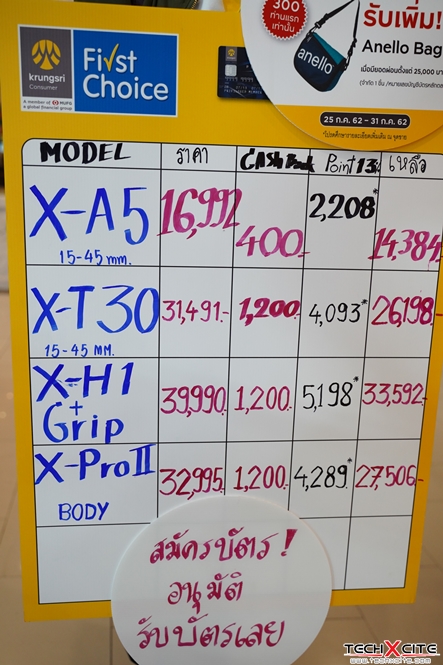 krungsri
Consumer
A member of MUFG
a global financial group
First
Choice
300
ท่านแรก
เท่านั้น
รับเพิ่ม!
anello
Anello Bag
เมื่อมียอดผ่อนตั้งแต่ 25,000 บาท
25 ก.ค. 62 - 31 ก.ค. 62
MODEL ราคา CASH Back Point 13% เหลือ
X-A5 16,992 400.- 2,208* 14,384.-
15-45 mm.
X-T30 31,491.- 1,200.- 4,093* 26,198.-
15-45 MM.
X-H1 + Grip 39,990.- 1,200.- 5,198* 33,592.-
X-Pro II 32,995.- 1,200.- 4,289.* 27,506.-
BODY
สมัครบัตร!
อนุมัติ
รับบัตรเลย
TECHXCITE
www.techxcite.com